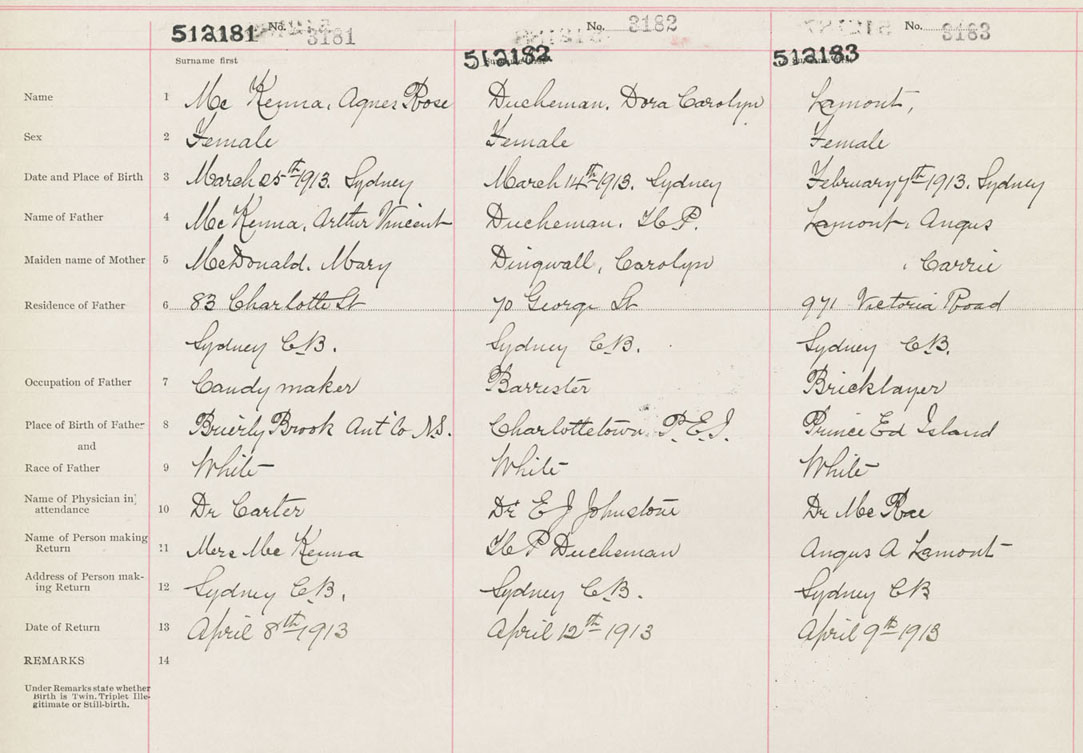 512181 No. 3181 512182 No. 3182 512183 No. 3183
Surname first
Name 1 Mc Kenna, Agnes Rose Ducheman, Dora Carolyn Lamont,
Sex 2 Female Female Female
Date and Place of Birth 3 March 25th 1913. Sydney March 14th 1913. Sydney February 7th 1913. Sydney
Name of Father 4 McKenna, Arthur Vincent Ducheman, H P. Lamont, Angus
Maiden name of Mother 5 McDonald. Mary Dingwall, Carolyn , Carrie
Residence of Father 6 83 Charlotte St 70 George St 971 Victoria Road
Sydney C.B. Sydney C.B. Sydney C.B.
Occupation of Father 7 Candy maker Barrester Bricklayer
Place of Birth of Father 8 Brierly Brook Ant Co N.S. Charlottetown P.E.I. Prince Ed Island
and
Race of Father 9 White White White
Name of Physician in
attendance 10 Dr Carter Dr E J Johnstone Dr Mc Rae
Name of Person making
Return 11 Mrs Mc Kenna H P Ducheman Angus A Lamont
Address of Person mak-
ing Return 12 Sydney C.B. Sydney C.B. Sydney CB
Date of Return 13 April 8th 1913 April 12th 1913 April 9th 1913
REMARKS 14
Under Remarks state whether
Birth is Twin, Triplet Ille-
gitimate or Still-birth.